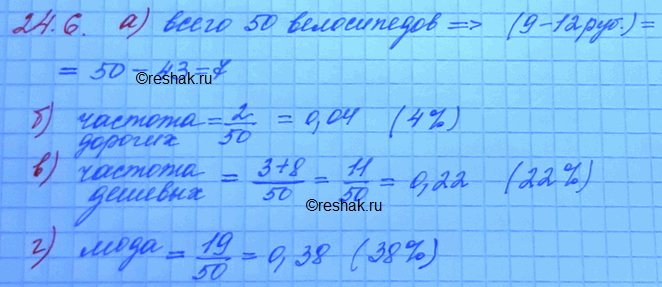 24.6. а) всего 50 велосипедов => (9-12 руб.) =
= 50 - 43 = 7
б) частота дорогих = 2/50 = 0,04 (4%)
в) частота дешевых = 3+8/50 = 11/50 = 0,22 (22%)
©reshak.ru
г) мода = 19/50 = 0,38 (38%)